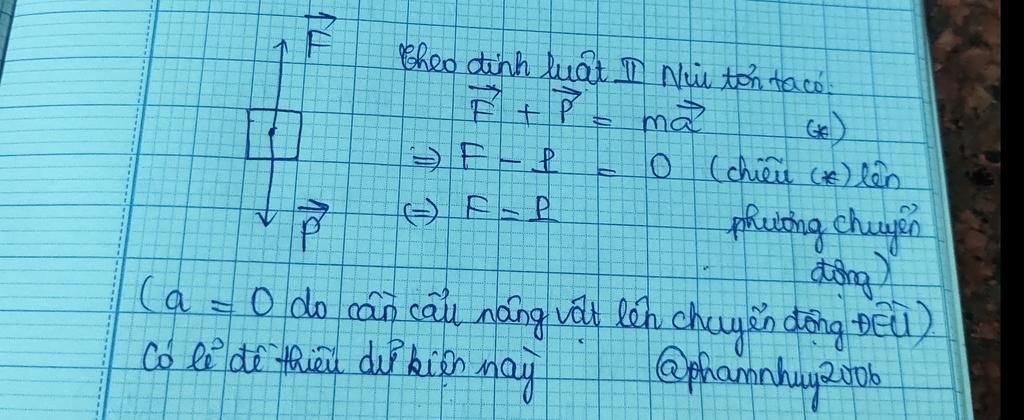 F
Theo định luật II Niu tơn ta có:
F + P = ma (*)
=> F - P = 0 (chiếu (*) lên
phương chuyển
động)
<=> F = P
P
(a = 0 do cần cẩu nâng vật lên chuyển động ĐỀU)
Có lẽ đề thiếu dữ kiện này @phamnhuy2006